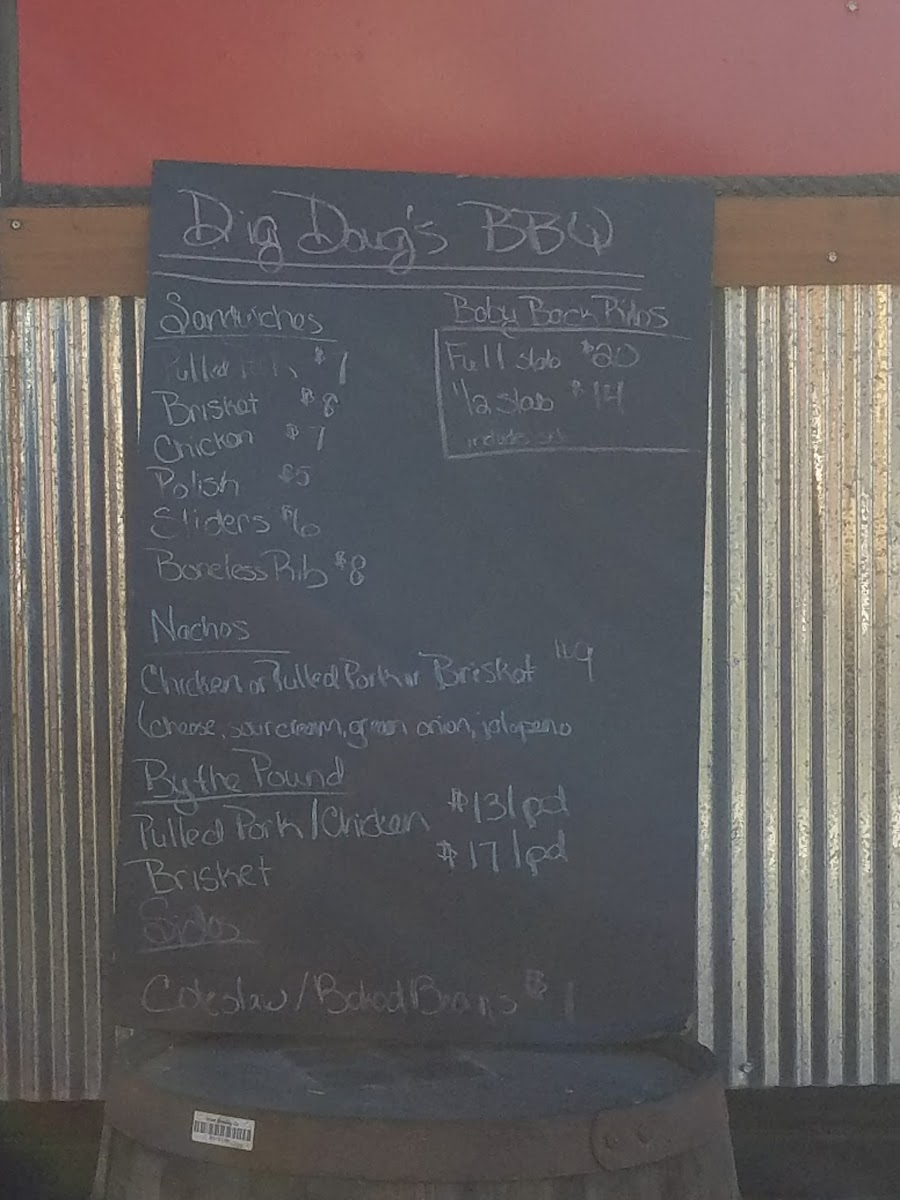 Dig Doug's BBQ
Sandwiches
Pulled $7
Brisket $8
Chicken $7
Polish $5
Sliders $6
Boneless Rib $8
Baby Back Ribs
Full slab $20
1/2 slab $14
includes
Nachos
Chicken or Pulled Pork or Brisket
(cheese, sour cream, green onion, jalapeno
By the Pound
Pulled Pork/Chicken $13/pd
Brisket $17/pd
Sides
Coleslaw/Baked Beans $